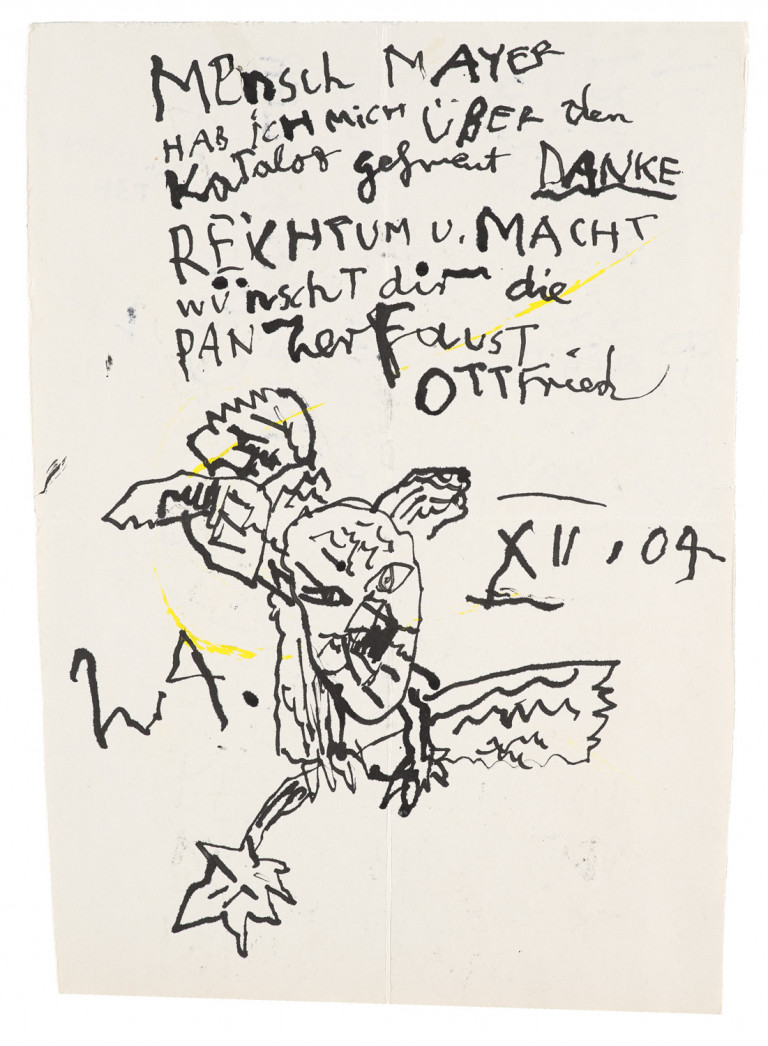 MEnscH MAYER
HAB ICH MicH ÜBER den
Katalog gefreut DANKE
REICHTUM U. MACHT
wünschT dir die
PANzerFaust
OTTFried
XII . 04
L.A.